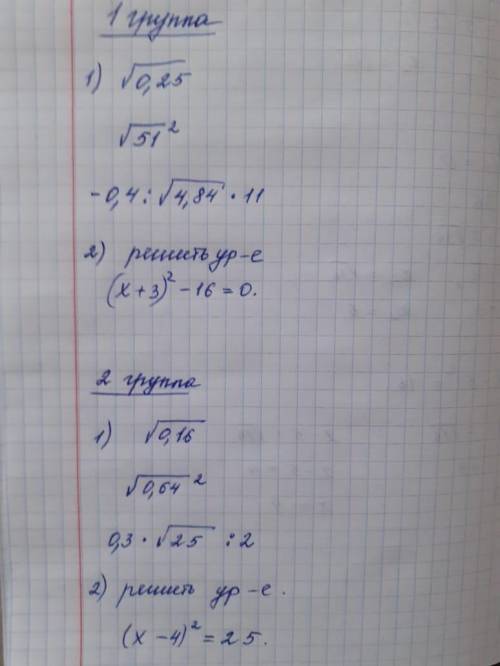 1 группа
1) √0,25
√51²
-0,4 : √4,84 · 11
2) решить ур-е
(x+3)² - 16 = 0.
2 группа
1) √0,16
√0,64²
0,3 · √25 : 2
2) решить ур-е.
(x - 4)² = 25.